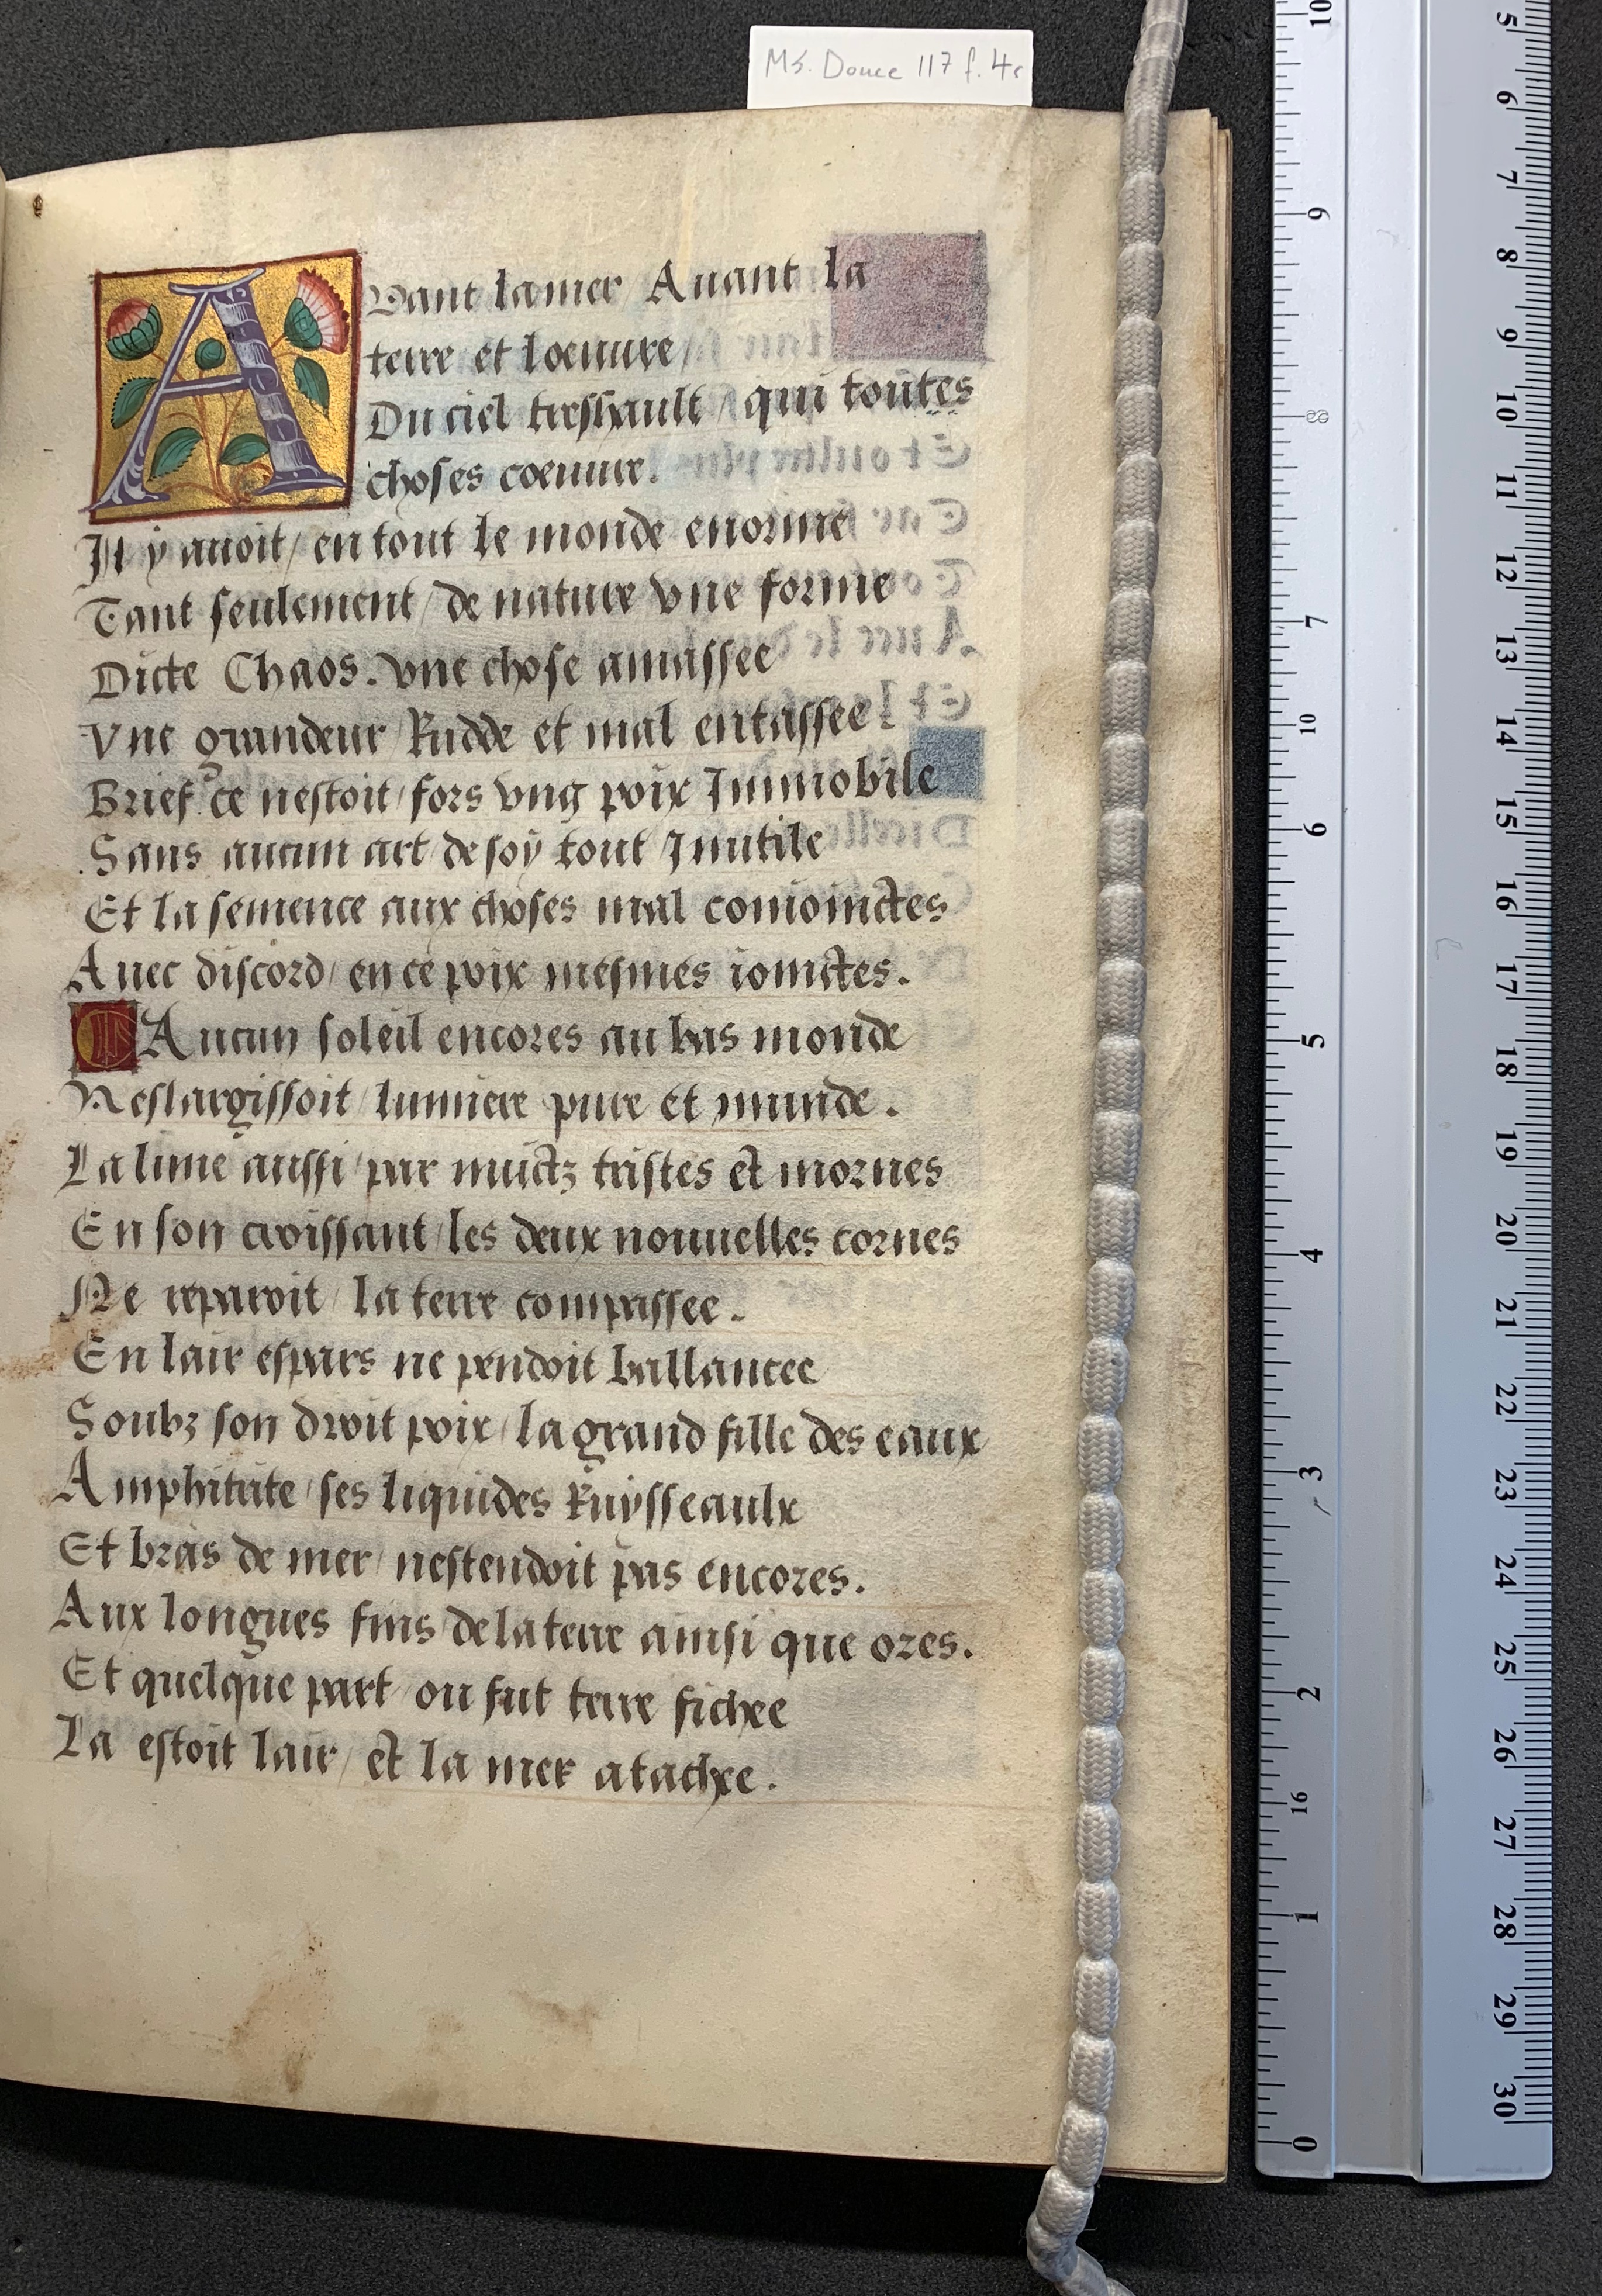 Ms. Douce 117 f. 4r
Avant lamer Auant la
terre et loeuure /
Du ciel treshault / qui toutes
choses coeuure.
Il y auoit / en tout le monde enorme
Tant seulement / de nature vne forme
Dicte Chaos. vne chose amassee
Vne grandeur Rudde et mal entassee
Brief ce nestoit / fors vng poix Immobile
Sans aucun art / de soy tout Inutile
Et la semence aux choses mal conioinctes
Auec discord / en ce poix mesmes ioinctes.
Aucun soleil encores au bas monde
Neslargissoit / lumiere pure et munde.
La lune aussi / par nuictz tristes et mornes
En son croissant / les deux nouuelles cornes
Ne reparoit / la terre compassee.
En lair espars ne pendoit ballancee
Soubz son droit poix / la grand fille des eaux
Amphitrite / ses liquides Ruysseaulx
Et bras de mer / nestendoit pas encores.
Aux longues fins / de la terre ainsi que ores.
Et quelque part / ou fut terre fichee
La estoit lair / et la mer atachee.
10
9
8
7
10
6
5
4
3
2
16
1
0
5
6
7
8
9
10
11
12
13
14
15
16
17
18
19
20
21
22
23
24
25
26
27
28
29
30